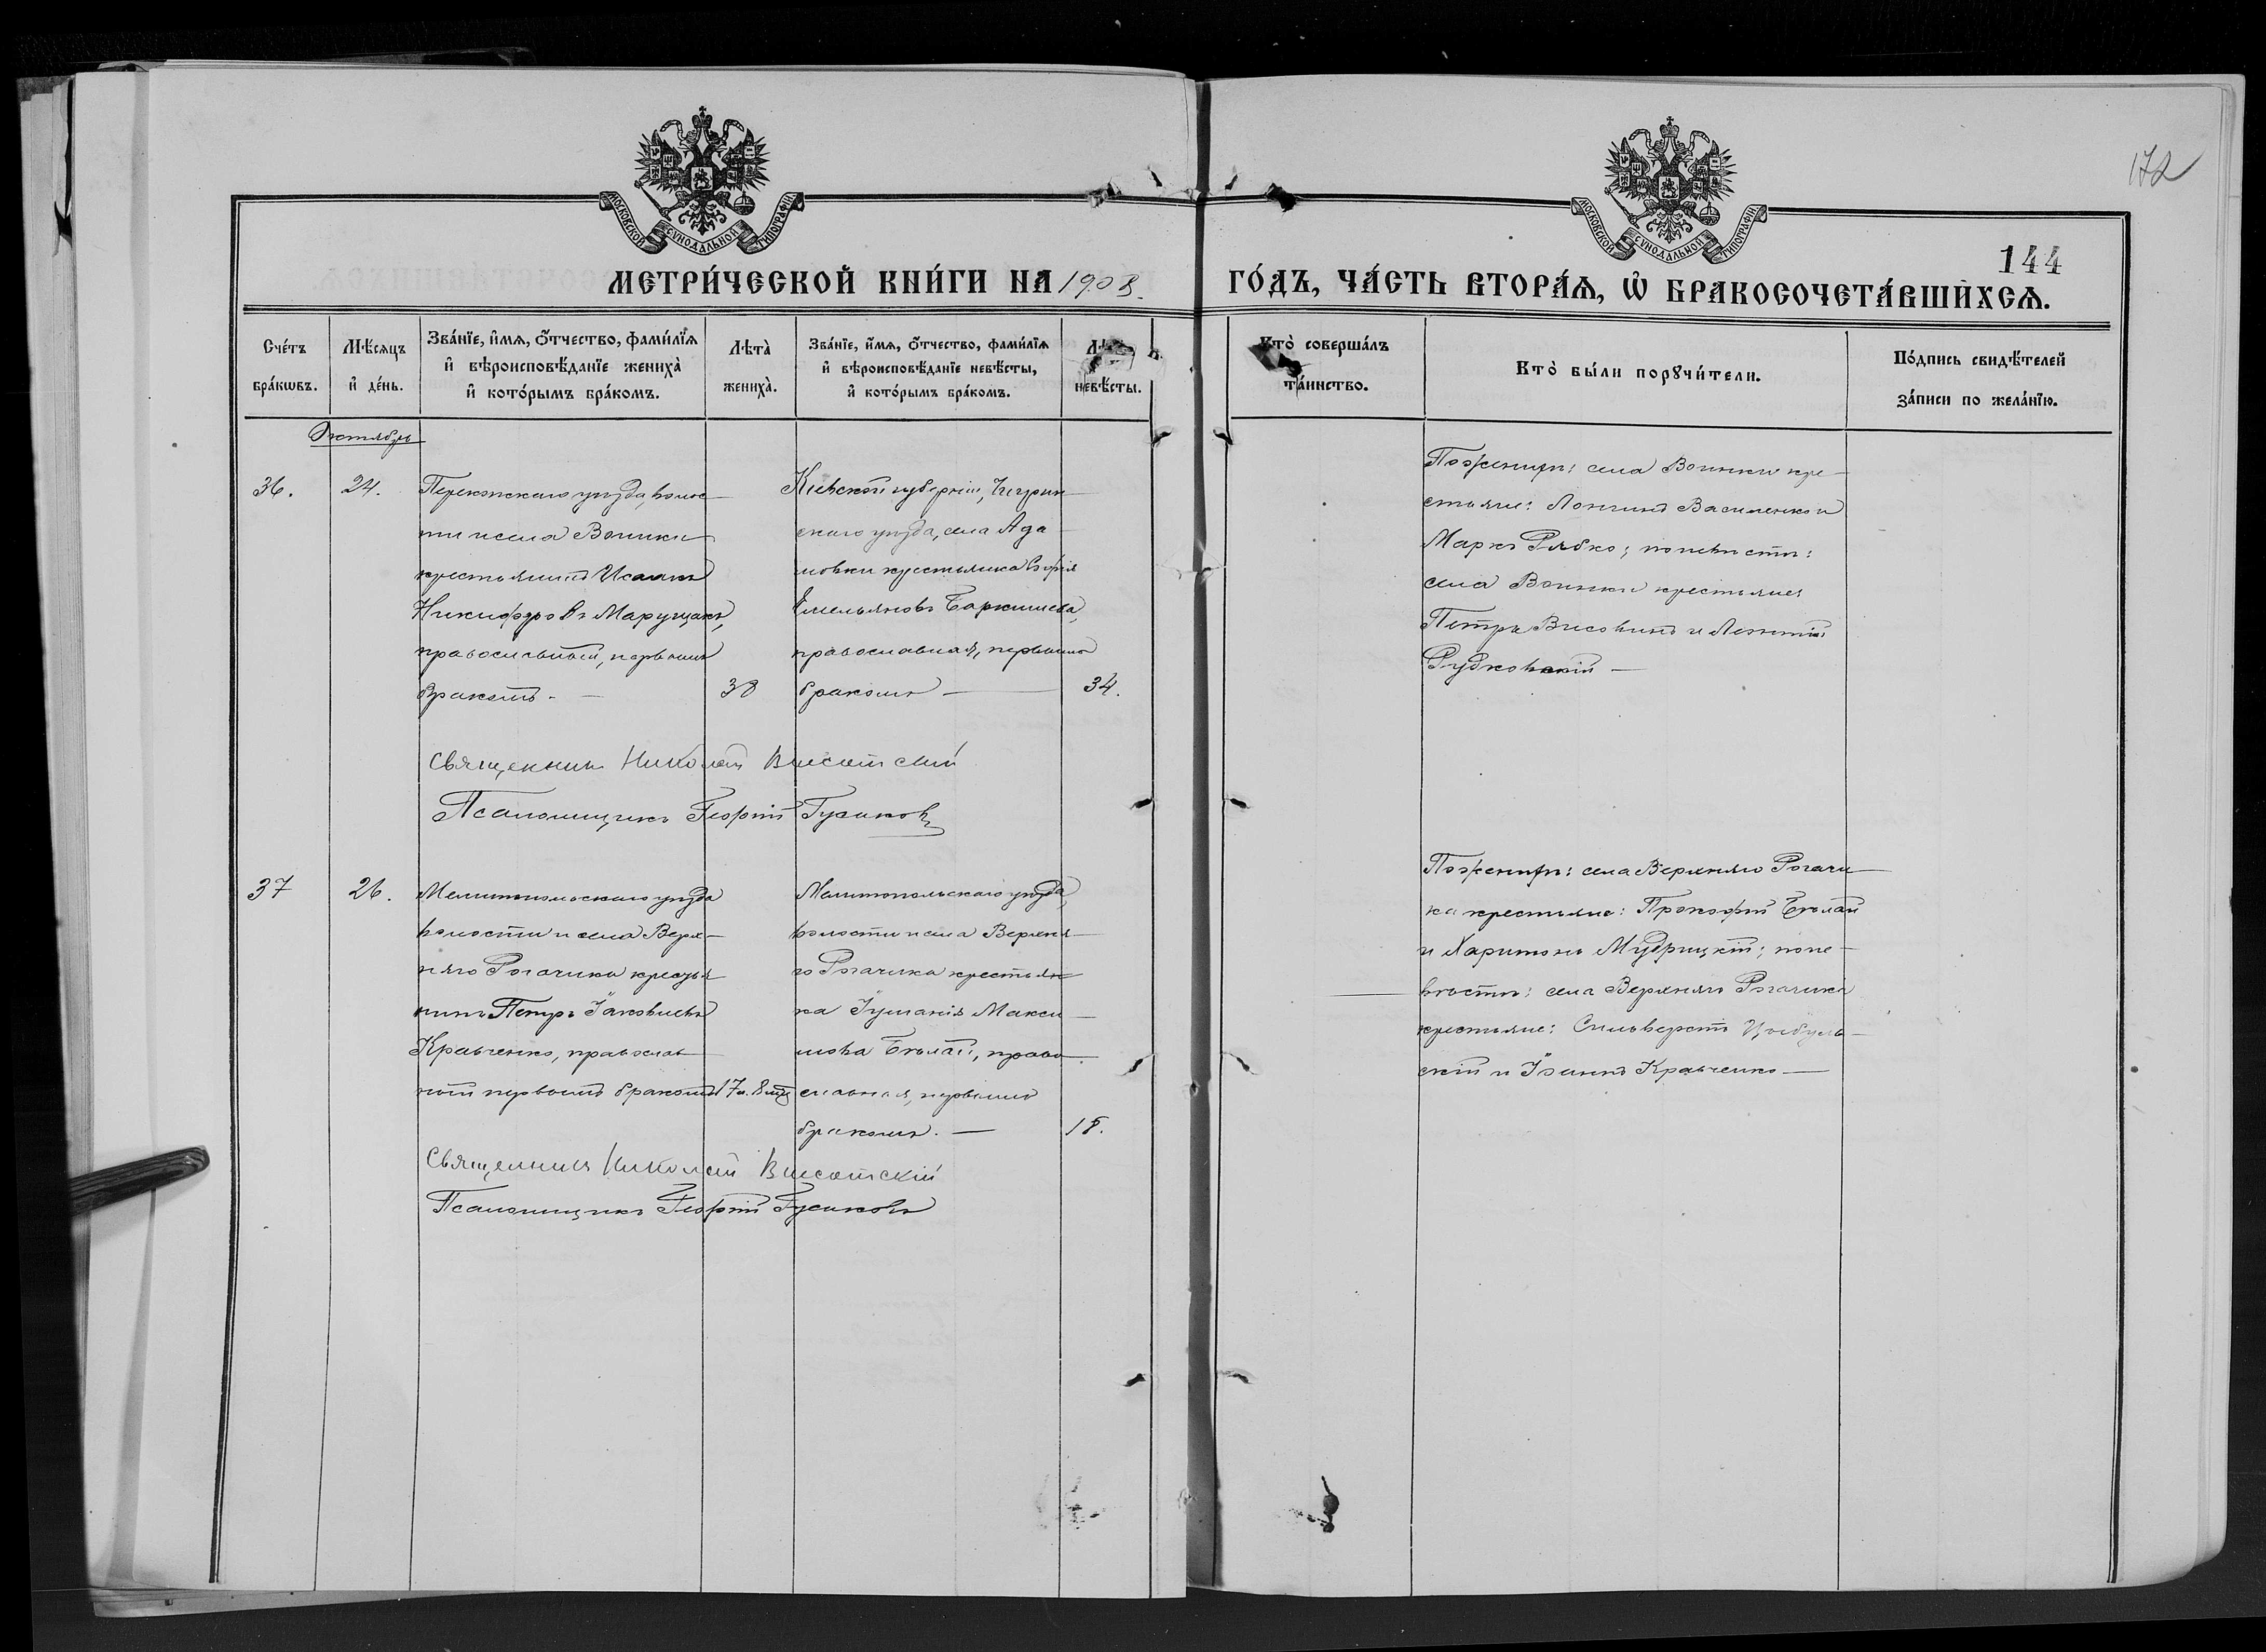 172
МОСКОВСКОЙ СѴНОДАЛЬНОЙ ТИПОГРАФІИ
МОСКОВСКОЙ СѴНОДАЛЬНОЙ ТИПОГРАФІИ
144
МЕТРИ́ЧЕСКОЙ КНИ́ГИ НА 1908.
ГО́ДЪ, ЧА́СТЬ ВТОРА́Ѧ, Ѡ҆ БРАКОСОЧЕТА́ВШИХСѦ.
Сче́тъ бра́кѡвъ.
Мѣ́сѧцъ и҆ де́нь.
Зва́нїе, и҆́мѧ, ѻ҆́тчество, фами́лїѧ и҆ вѣроисповѣ́данїе жениха̀ и҆ кото́рымъ бра́комъ.
Лѣта̀ жениха̀.
Зва́нїе, и҆́мѧ, ѻ҆́тчество, фами́лїѧ и҆ вѣроисповѣ́данїе невѣ́сты, и҆ кото́рымъ бра́комъ.
невѣ́сты.
Кто̀ соверша́лъ та́инство.
Кто̀ бы́ли порꙋчи́тели.
По́дпись свидѣ́телей за́писи по жела́нїю.
Октябрь
36.
24.
Перекопскаго уѣзда, волос-
ти и села Воинки
крестьянинъ Исаакъ
Никифоровъ Марущакъ,
православный, первымъ
бракомъ. —
38
Кіевской губерніи, Чигрин-
скаго уѣзда, села Ада-
мовки крестьянка Софія
Емельянова
православная, первымъ
бракомъ —
34.
По женихѣ: села Воинки кре-
стьяне: Лонгинъ Василенко и
Маркъ Рябко; по невѣстѣ:
села Воинки крестьяне
Петръ и Леонтій
Рудковскій —
Священникъ Николай Высотскій
Псаломщикъ Георгій Гусаковъ
37
26.
Мелитопольскаго уѣзда
волости и села Верх-
няго Рогачика крестья
нинъ Петръ Іаковлевъ
Кравченко, православ-
ный первымъ бракомъ
17 л. 8 мѣс
Мелитопольскаго уѣзда,
волости и села Верхня-
го Рогачика крестьян-
ка Іуліанія Макси-
мова Бѣлай, право-
славная, первымъ
бракомъ. —
18.
По женихѣ: села Верхняго Рогачи-
ка крестьяне: Прокофій Бѣлай
и Харитонъ Мудрицкій; по не-
вѣстѣ: села Верхняго Рогачика
крестьяне: Сильверстъ Цыбуль-
скій и Іоаннъ Кравченко —
Священникъ Николай Высотскій
Псаломщикъ Георгій Гусаковъ